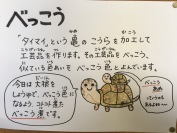 べっこう
"タイマイ"という亀のこうらを加工して
工芸品を作ります。その工芸品をべっこう、
似ている色あいをべっこう色とよんでいます。
今日は大根を
しょうゆで、べっこう色に
なるよう、コトコト煮た
べっこう煮です。
べっこう
色の